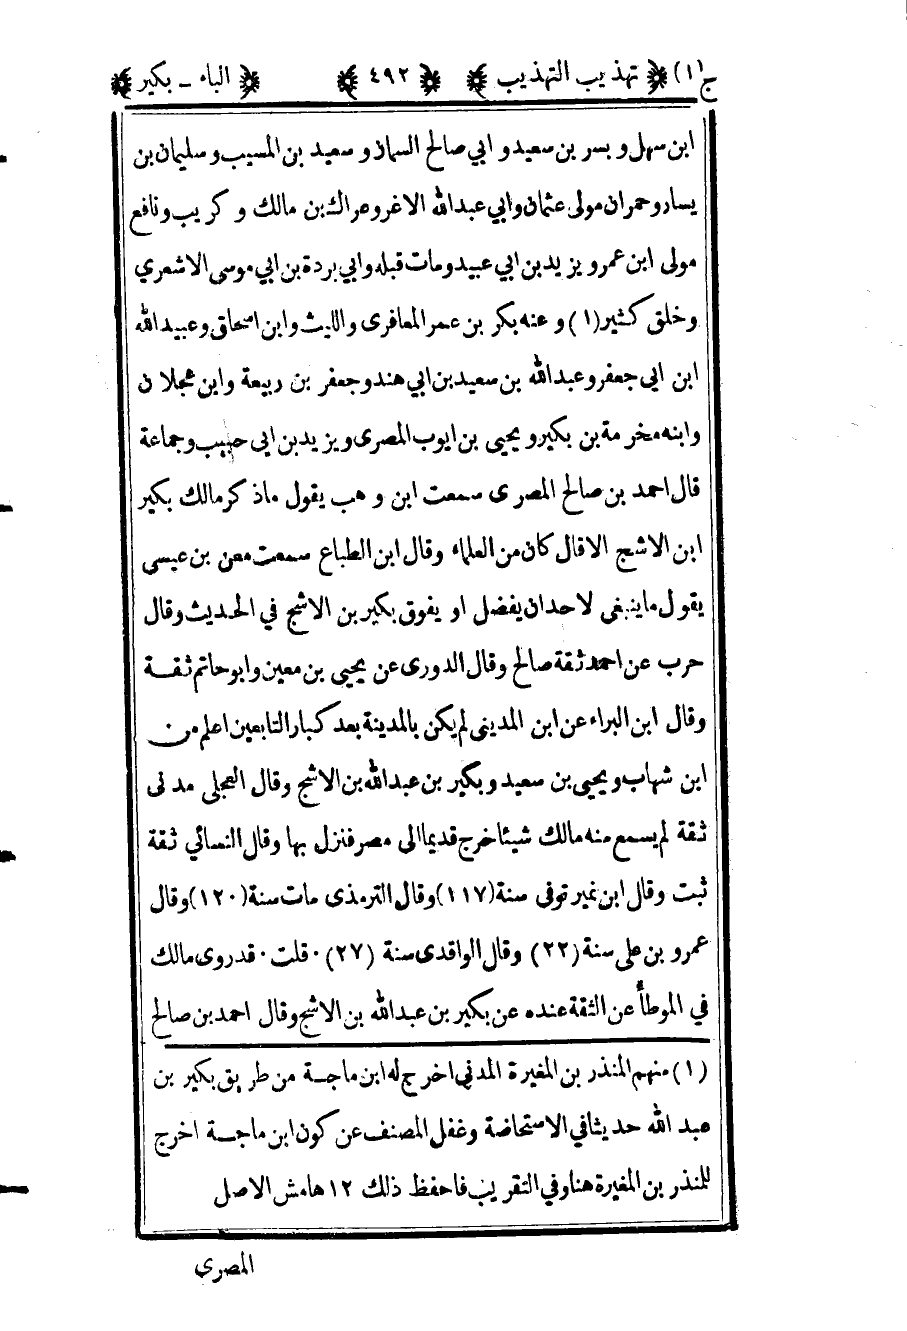 ج(١) تهذيب التهذيب ٤٩٢ الباء - بكير
ابن سهل وبسر بن سعيد وابي صالح السمان وسعيد بن المسيب وسليمان بن
يسار وحمران مولى عثمان وابي عبد الله الاغر وعراك بن مالك وكريب ونافع
مولى ابن عمر ويزيد بن ابي عبيد ومات قبله وابي بردة بن ابي موسى الاشعري
وخلق كثير (١) وعنه بكر بن عمر المعافرى والليث وابن اسحاق وعبيد الله
ابن ابى جعفر وعبد الله بن سعيد بن ابي هند وجعفر بن ربيعة وابن عجلان
وابنه مخرمة بن بكير ويحيى بن ايوب المصرى ويزيد بن ابى حبيب وجماعة
قال احمد بن صالح المصرى سمعت ابن وهب يقول ماذكر مالك بكير
ابن الاشج الا قال كان من العلماء وقال ابن الطباع سمعت معن بن عيسى
يقول ما ينبغى لاحد ان يفضل او يفوق بكير بن الاشج في الحديث وقال
حرب عن احمد ثقة صالح وقال الدورى عن يحيى بن معين وابو حاتم ثقة
وقال ابن البراء عن ابن المدينى لم يكن بالمدينة بعد كبار التابعين اعلم من
ابن شهاب ويحيى بن سعيد وبكير بن عبد الله بن الاشج وقال العجلى مدنى
ثقة لم يسمع منه مالك شيئا خرج قديما الى مصر فنزل بها وقال النسائي ثقة
ثبت وقال ابن نمير توفى سنة (١١٧) وقال الترمذى مات سنة (١٢٠) وقال
عمرو بن على سنة (٢٢) وقال الواقدى سنة (٢٧) ٠ قلت ٠ قد روى مالك
في الموطأ عن الثقة عنده عن بكير بن عبد الله بن الاشج وقال احمد بن صالح
(١) منهم المنذر بن المغيرة المدنى اخرج له ابن ماجة من طريق بكير بن
عبد الله حديثا في الاستحاضة وغفل المصنف عن كون ابن ماجة اخرج
للمنذر بن المغيرة هنا وفي التقريب فاحفظ ذلك ١٢ هامش الاصل
المصرى